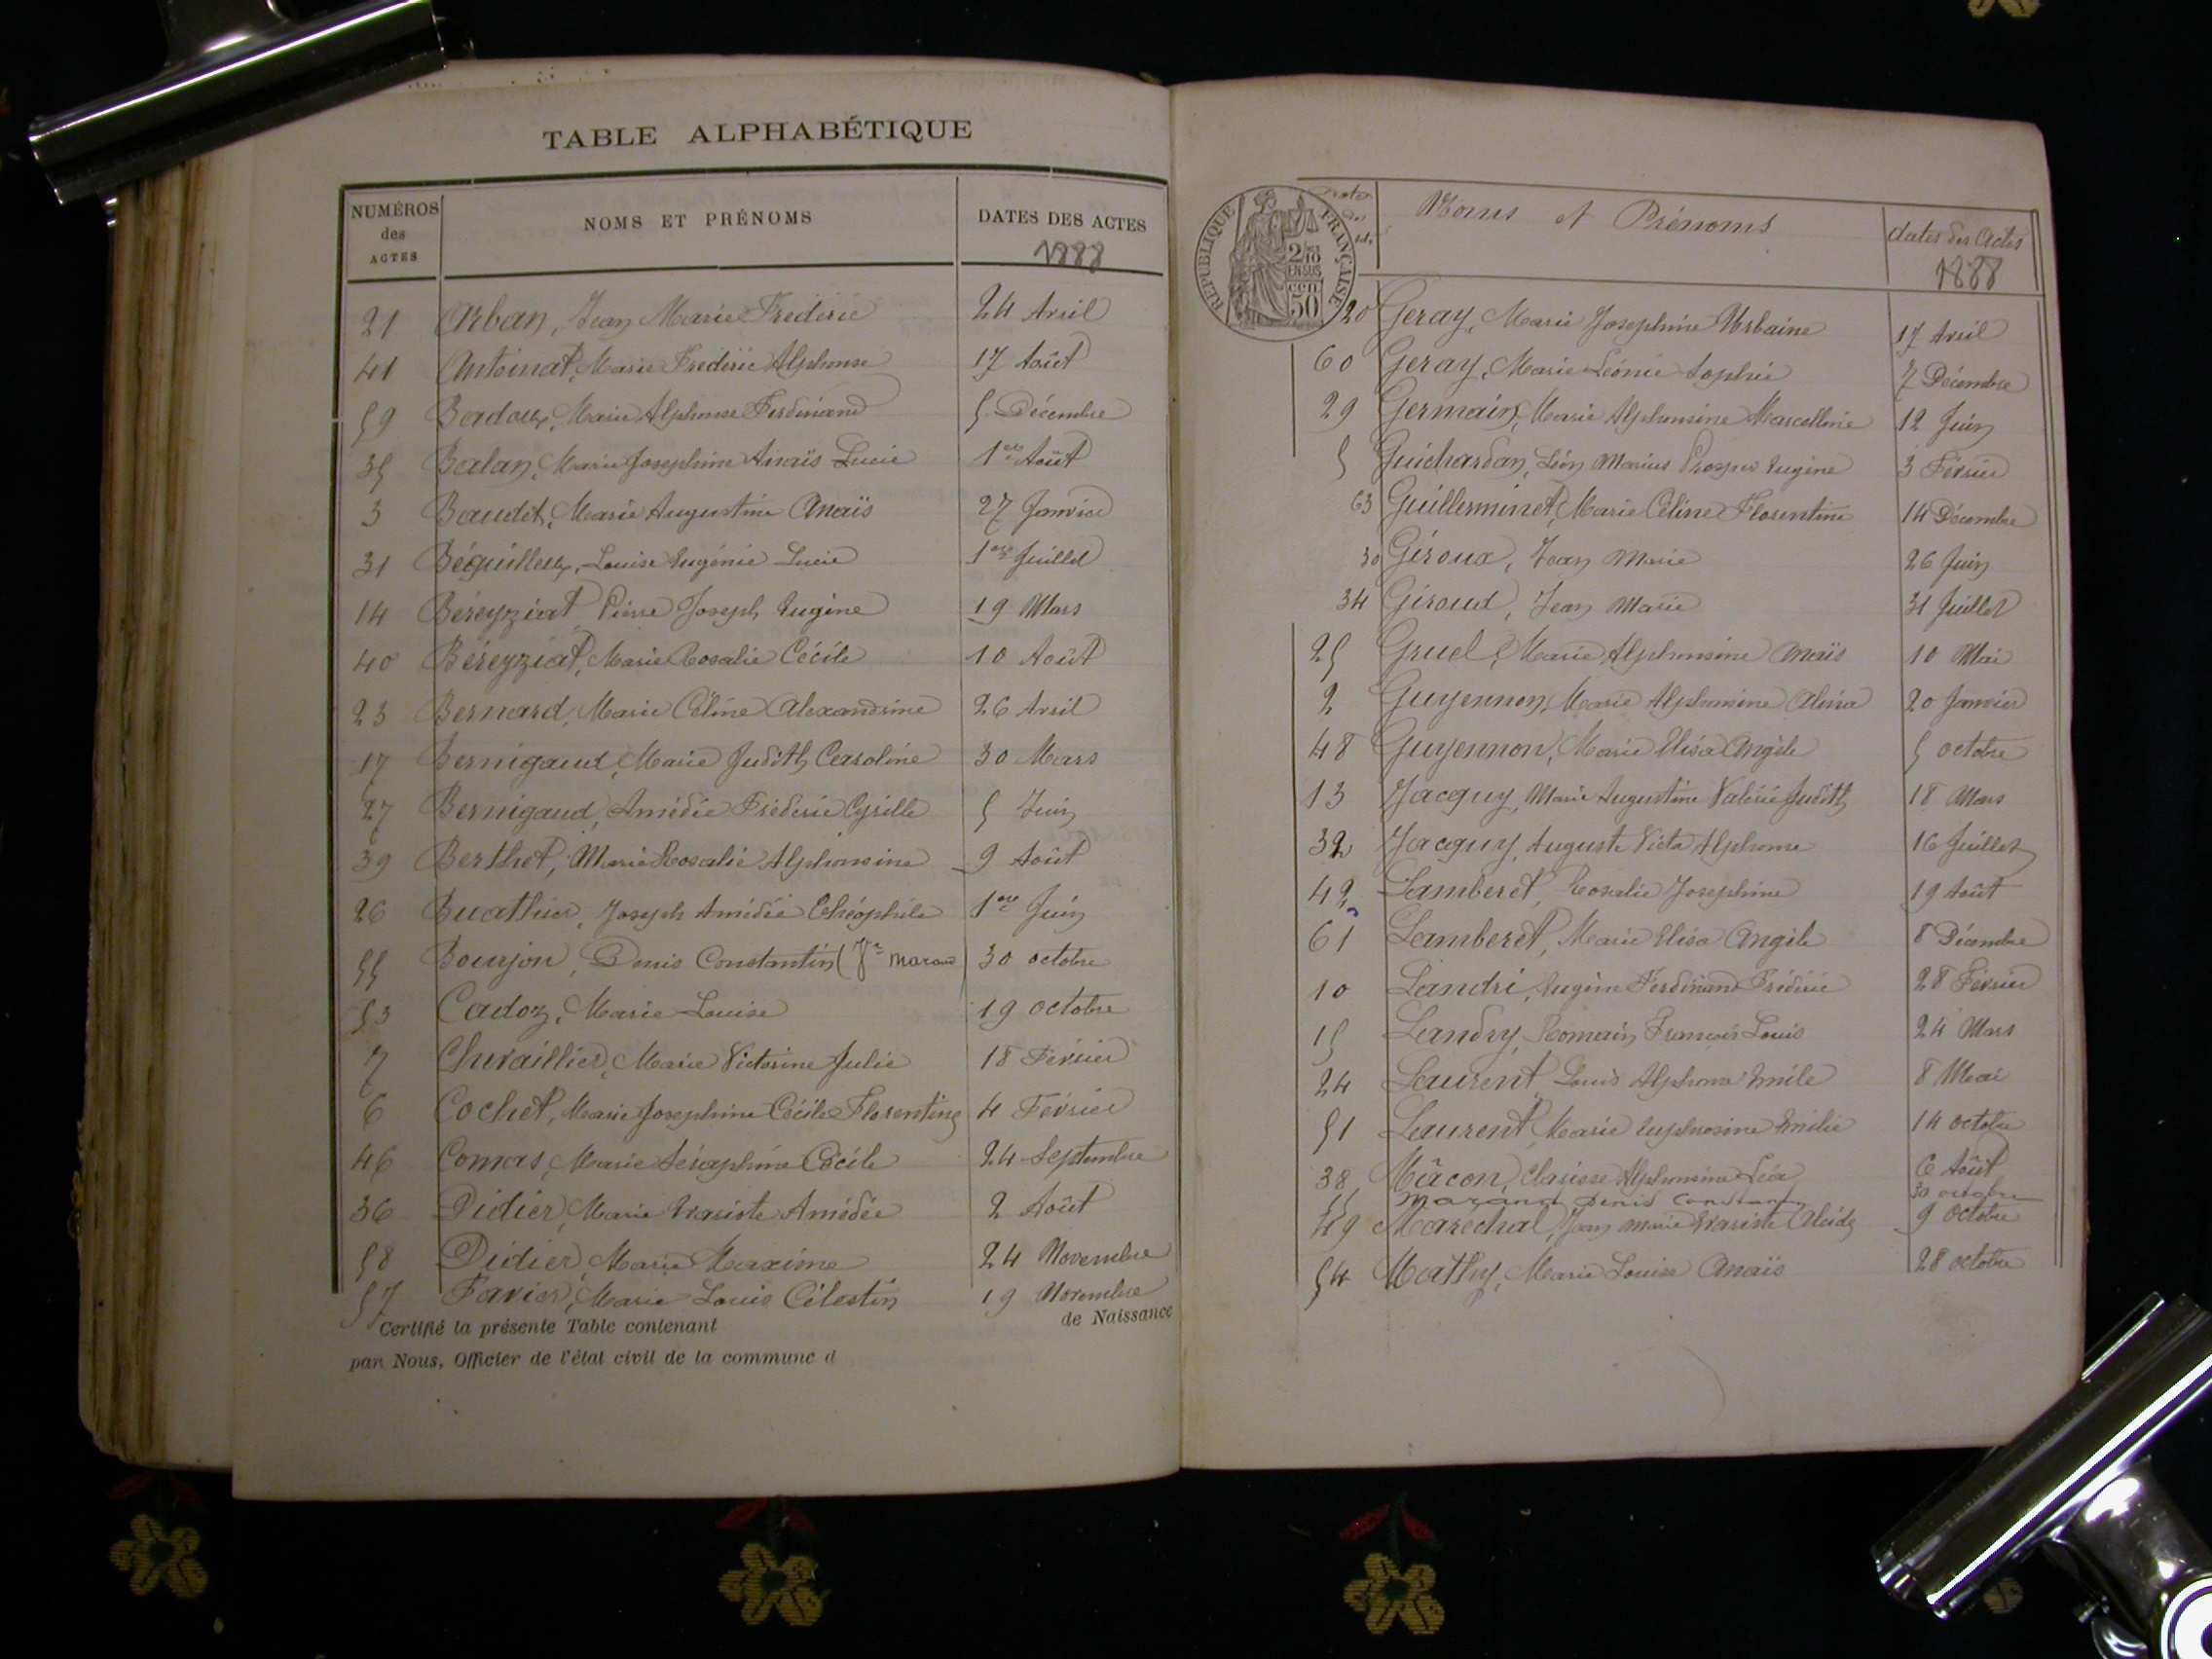 TABLE ALPHABÉTIQUE
NUMÉROS des ACTES NOMS ET PRÉNOMS DATES DES ACTES
1888
21 Arban, Jean Marie Frédéric 24 Avril
41 Antoinat, Marie Frédéric Alphonse 17 Août
59 Badoux, Marie Alphonse Ferdinand 5 Décembre
35 Balan, Marie Joséphine Anaïs Lucie 1er Août
3 Baudet, Marie Augustine Anaïs 27 Janvier
31 Béguilleux, Louise Eugénie Lucie 1er Juillet
14 Béreyziat Pierre Joseph Eugène 19 Mars
40 Béreyziat, Marie Rosalie Cécile 10 Août
23 Bernard, Marie Céline Alexandrine 26 Avril
17 Bernigaud, Marie Judith Caroline 30 Mars
27 Bernigaud, Amédée Frédéric Cyrille 5 Juin
39 Berthet, Marie Rosalie Alphonsine 9 Août
26 Buathier, Joseph Amédée Théophile 1er Juin
55 Bourjon, Denis Constantin 30 octobre
53 Cadoz, Marie Louise 19 octobre
7 Chevaillier, Marie Victorine Julie 18 Février
6 Cochet, Marie Joséphine Cécile Florentine 4 Février
46 Comas, Marie Séraphine Cécile 24 Septembre
36 Didier, Marie Evariste Amédée 2 Août
58 Didier, Marie Maxime 24 Novembre
57 Favier, Marie Louis Célestin 19 Novembre
Certifié la présente Table contenant de Naissance
par Nous, Officier de l'état civil de la commune d
RÉPUBLIQUE FRANÇAISE
2/10 EN SUS
50 cen
Noms et Prénoms dates des Actes
1888
20 Geray, Marie Joséphine Urbaine 17 Avril
60 Geray, Marie Léonie Sophie 7 Décembre
29 Germain, Marie Alphonsine Marcelline 12 Juin
5 Guichardan, Léon Marius Prosper Eugène 3 Février
63 Guillerminet, Marie Céline Florentine 14 Décembre
30 Giroux, Jean Marie 26 Juin
34 Giroud, Jean Marie 31 Juillet
25 Gruel, Marie Alphonsine Anaïs 10 Mai
2 Guyennon, Marie Alphonsine Alina 20 Janvier
48 Guyennon, Marie Elisa Angèle 5 octobre
13 Jacquy, Marie Augustine Valérie Judith 18 Mars
32 Jacquy, Auguste Victor Alphonse 16 Juillet
42 Lamberet, Rosalie Joséphine 19 Août
61 Lamberet, Marie Elisa Angèle 8 Décembre
10 Landri, Eugène Ferdinand Frédéric 28 Février
15 Landry, Romain François Louis 24 Mars
24 Laurent, Louis Alphonse Emile 8 Mai
51 Laurent, Marie Euphrosine Emilie 14 octobre
38 Mâcon, Clarisse Alphonsine Léa 6 Août
55 Marand Denis Constantin 30 octobre
49 Maréchal, Jean Marie Evariste Alcide 9 Octobre
54 Mathy, Marie Louise Anaïs 28 octobre